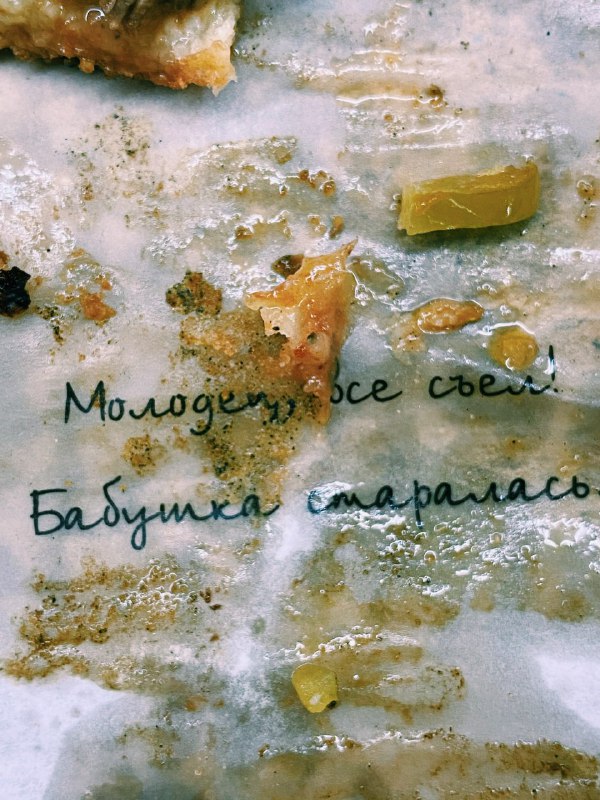 Молодец, все съел!
Бабушка старалась